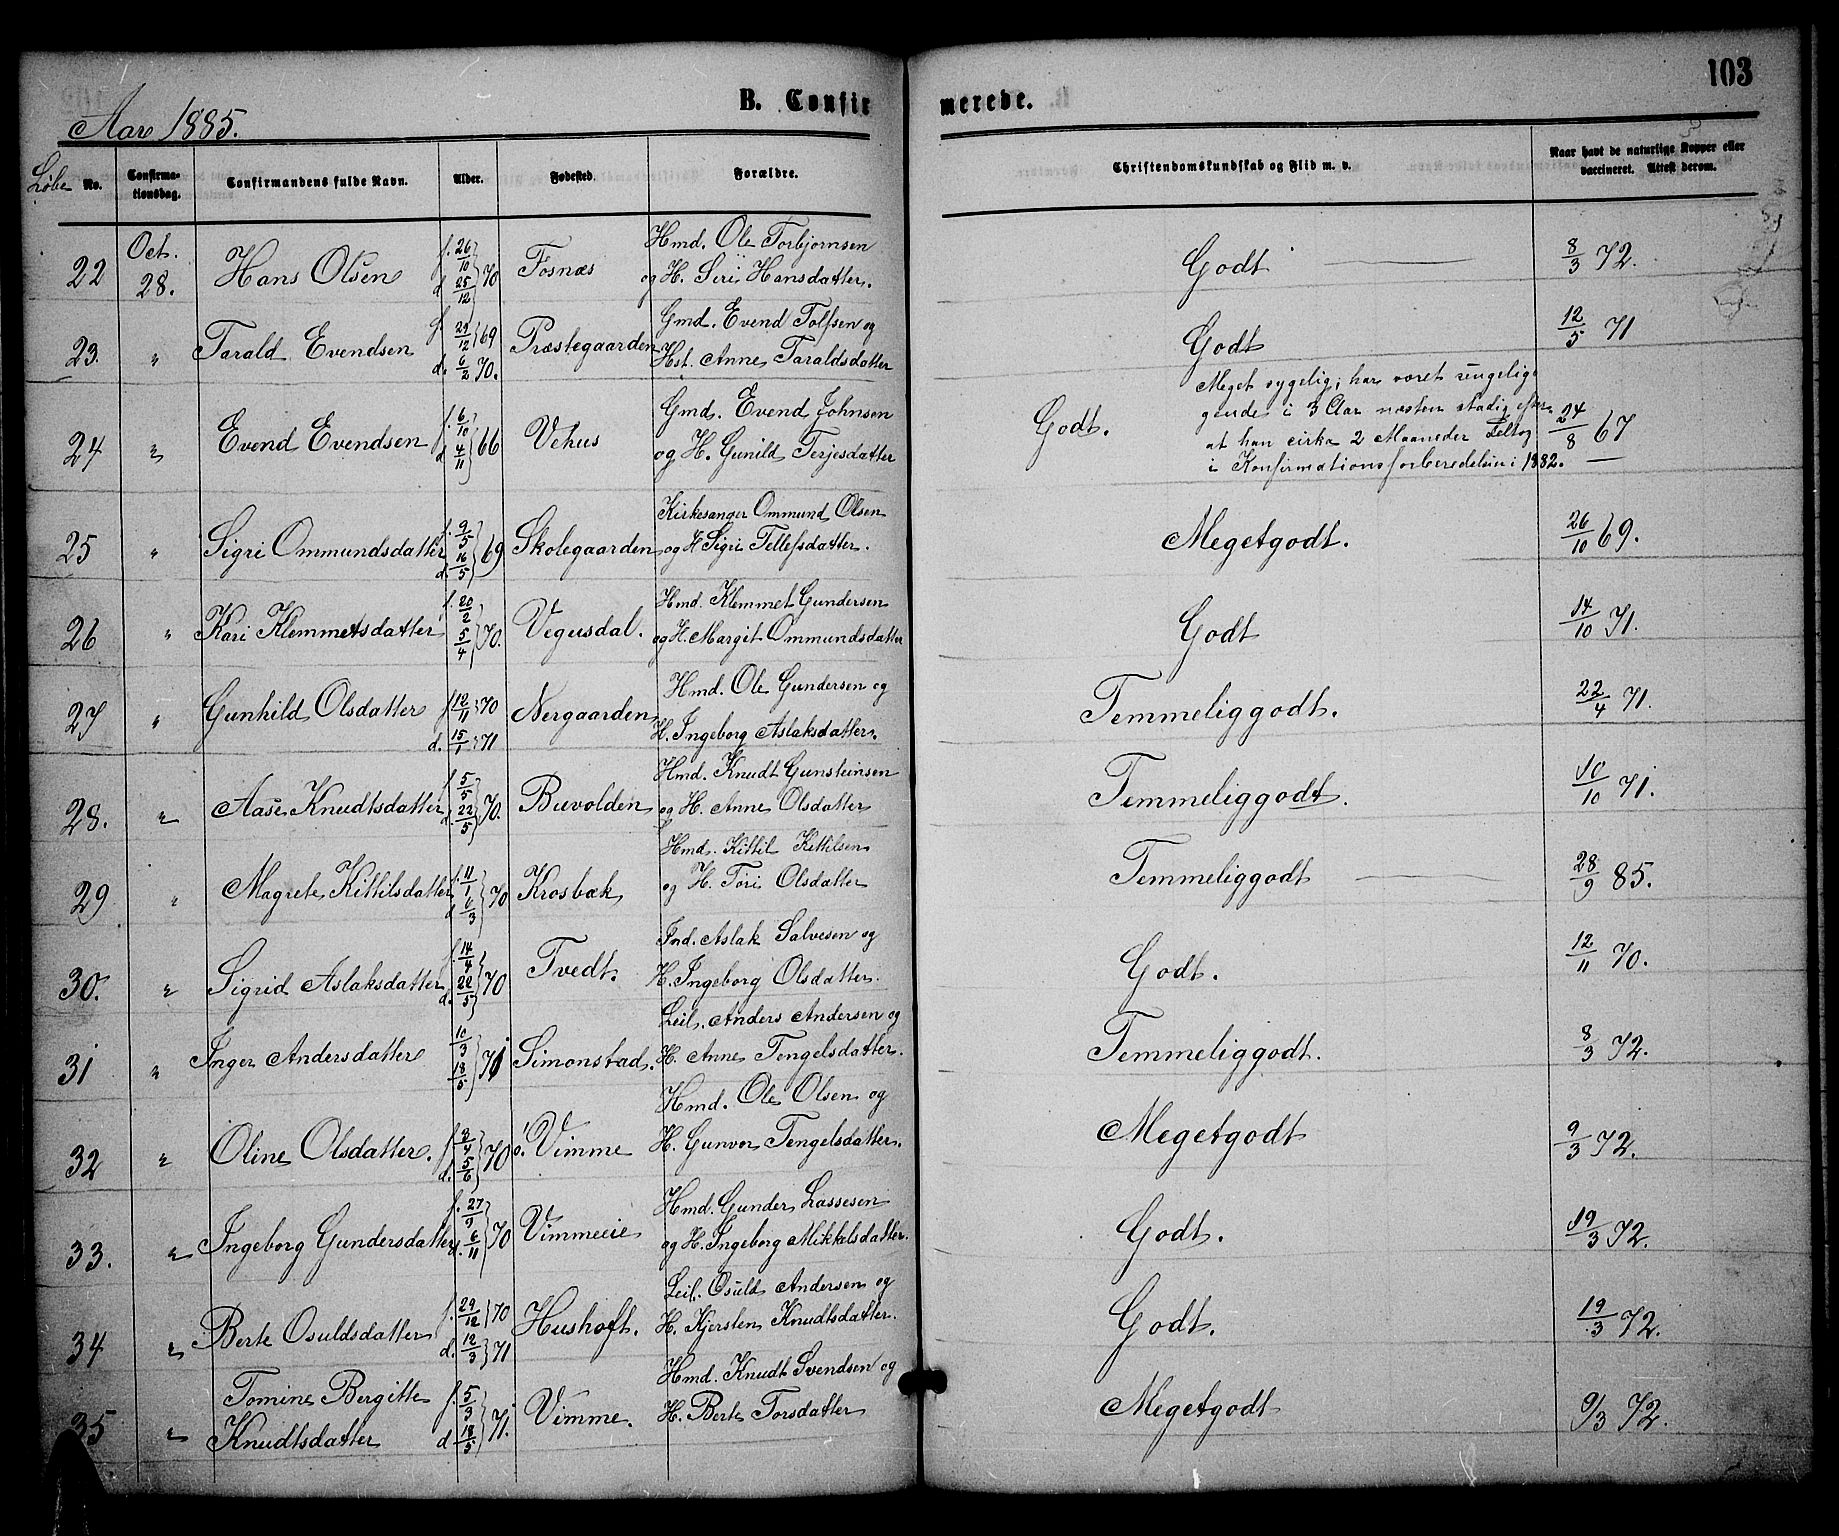 103
B. Confirmerede.
Aar 1885.
Løbe No. Confirmationsdag. Confirmandens fulde Navn. Alder. Fødested. Forældre. Christendomskundskab og Flid m. v. Naar havt de naturlige Kopper eller vaccineret. Attest derom.
22 Oct. 28. Hans Olsen f. 26/10 d. 25/12 70 Fosnæs Hmd. Ole Torbjørnsen Godt 8/3 72.
og H. Siri Hansdatter.
23. " Tarald Evendsen f. 29/12 69 d. 6/2 70. Præstegaarden Gmd. Evend Tolfsen og Godt 12/5 71
Hst. Anne Taraldsdatter
24 " Evend Evendsen f. 6/10 d. 4/11 66 Vehus Gmd. Evend Johnsen Godt. 24/8 67
og H. Gunild Terjesdatter
Meget sygelig; har været sengelig-
gende i 3 Aar næsten stadig efter
at han cirka 2 Maaneder deltog
i Konfirmationsforberedelsen i 1882.
25 " Sigri Ommundsdatter f. 9/5 d. 16/5 69 Skolegaarden Kirkesanger Ommund Olsen Megetgodt. 26/10 69.
og H Sigri Tellefsdatter.
26 " Kari Klemmetsdatter f. 20/2 5/4 70. Vegusdal. Hmd. Klemmet Gundersen Godt 14/10 71.
og H. Margit Ommundsdatter
27 " Gunhild Olsdatter f. 12/11 70 d. 15/1 71 Nergaarden Hmd. Ole Gundersen og Temmeliggodt. 22/4 71.
H. Ingeborg Aslaksdatter.
28. " Aase Knudtsdatter f. 5/5 d. 22/5 70. Buvolden Hmd. Knudt Gunsteinsen Temmeliggodt. 10/10 71.
og H. Anne Olsdatter
29 " Magrete Kittilsdatter f. 11/1 d. 6/3 70 Krosbæk Hmd. Kittil Kittilsen Temmeliggodt 28/9 85.
og H. Tøri Olsdatter
30. " Sigrid Aslaksdatter f. 14/4 d. 22/5 70 Tvedt. Ind. Aslak Salvesen og Godt. 12/11 70.
H. Ingeborg Olsdatter.
31 " Inger Andersdatter 10/3 18/5 71 Simonstad. Leil. Anders Andersen og Temmeliggodt. 8/3 72.
H. Anne Tengelsdatter.
32 " Oline Olsdatter. f. 8/4 d. 5/6 70 ø. Vimme Hmd. Ole Olsen og Megetgodt 9/3 72.
H. Gunvor Tengelsdatter.
33. " Ingeborg Gundersdatter f. 27/9 d. 6/11 70 Vimmeeie Hmd. Gunder Lassesen Godt. 19/3 72.
og H. Ingeborg Mikkelsdatter.
34 " Berte Osuldsdatter f. 29/12 70 d. 12/3 71 Hushoft. Leil. Osuld Andersen og Godt. 19/3 72.
H. Kjersten Knudtsdatter.
35 " Tomine Bergitte f. 5/3 d. 18/5 71. Vimme. Hmd. Knudt Svendsen og Megetgodt 9/3 72.
Knudtsdatter H. Berte Torsdatter